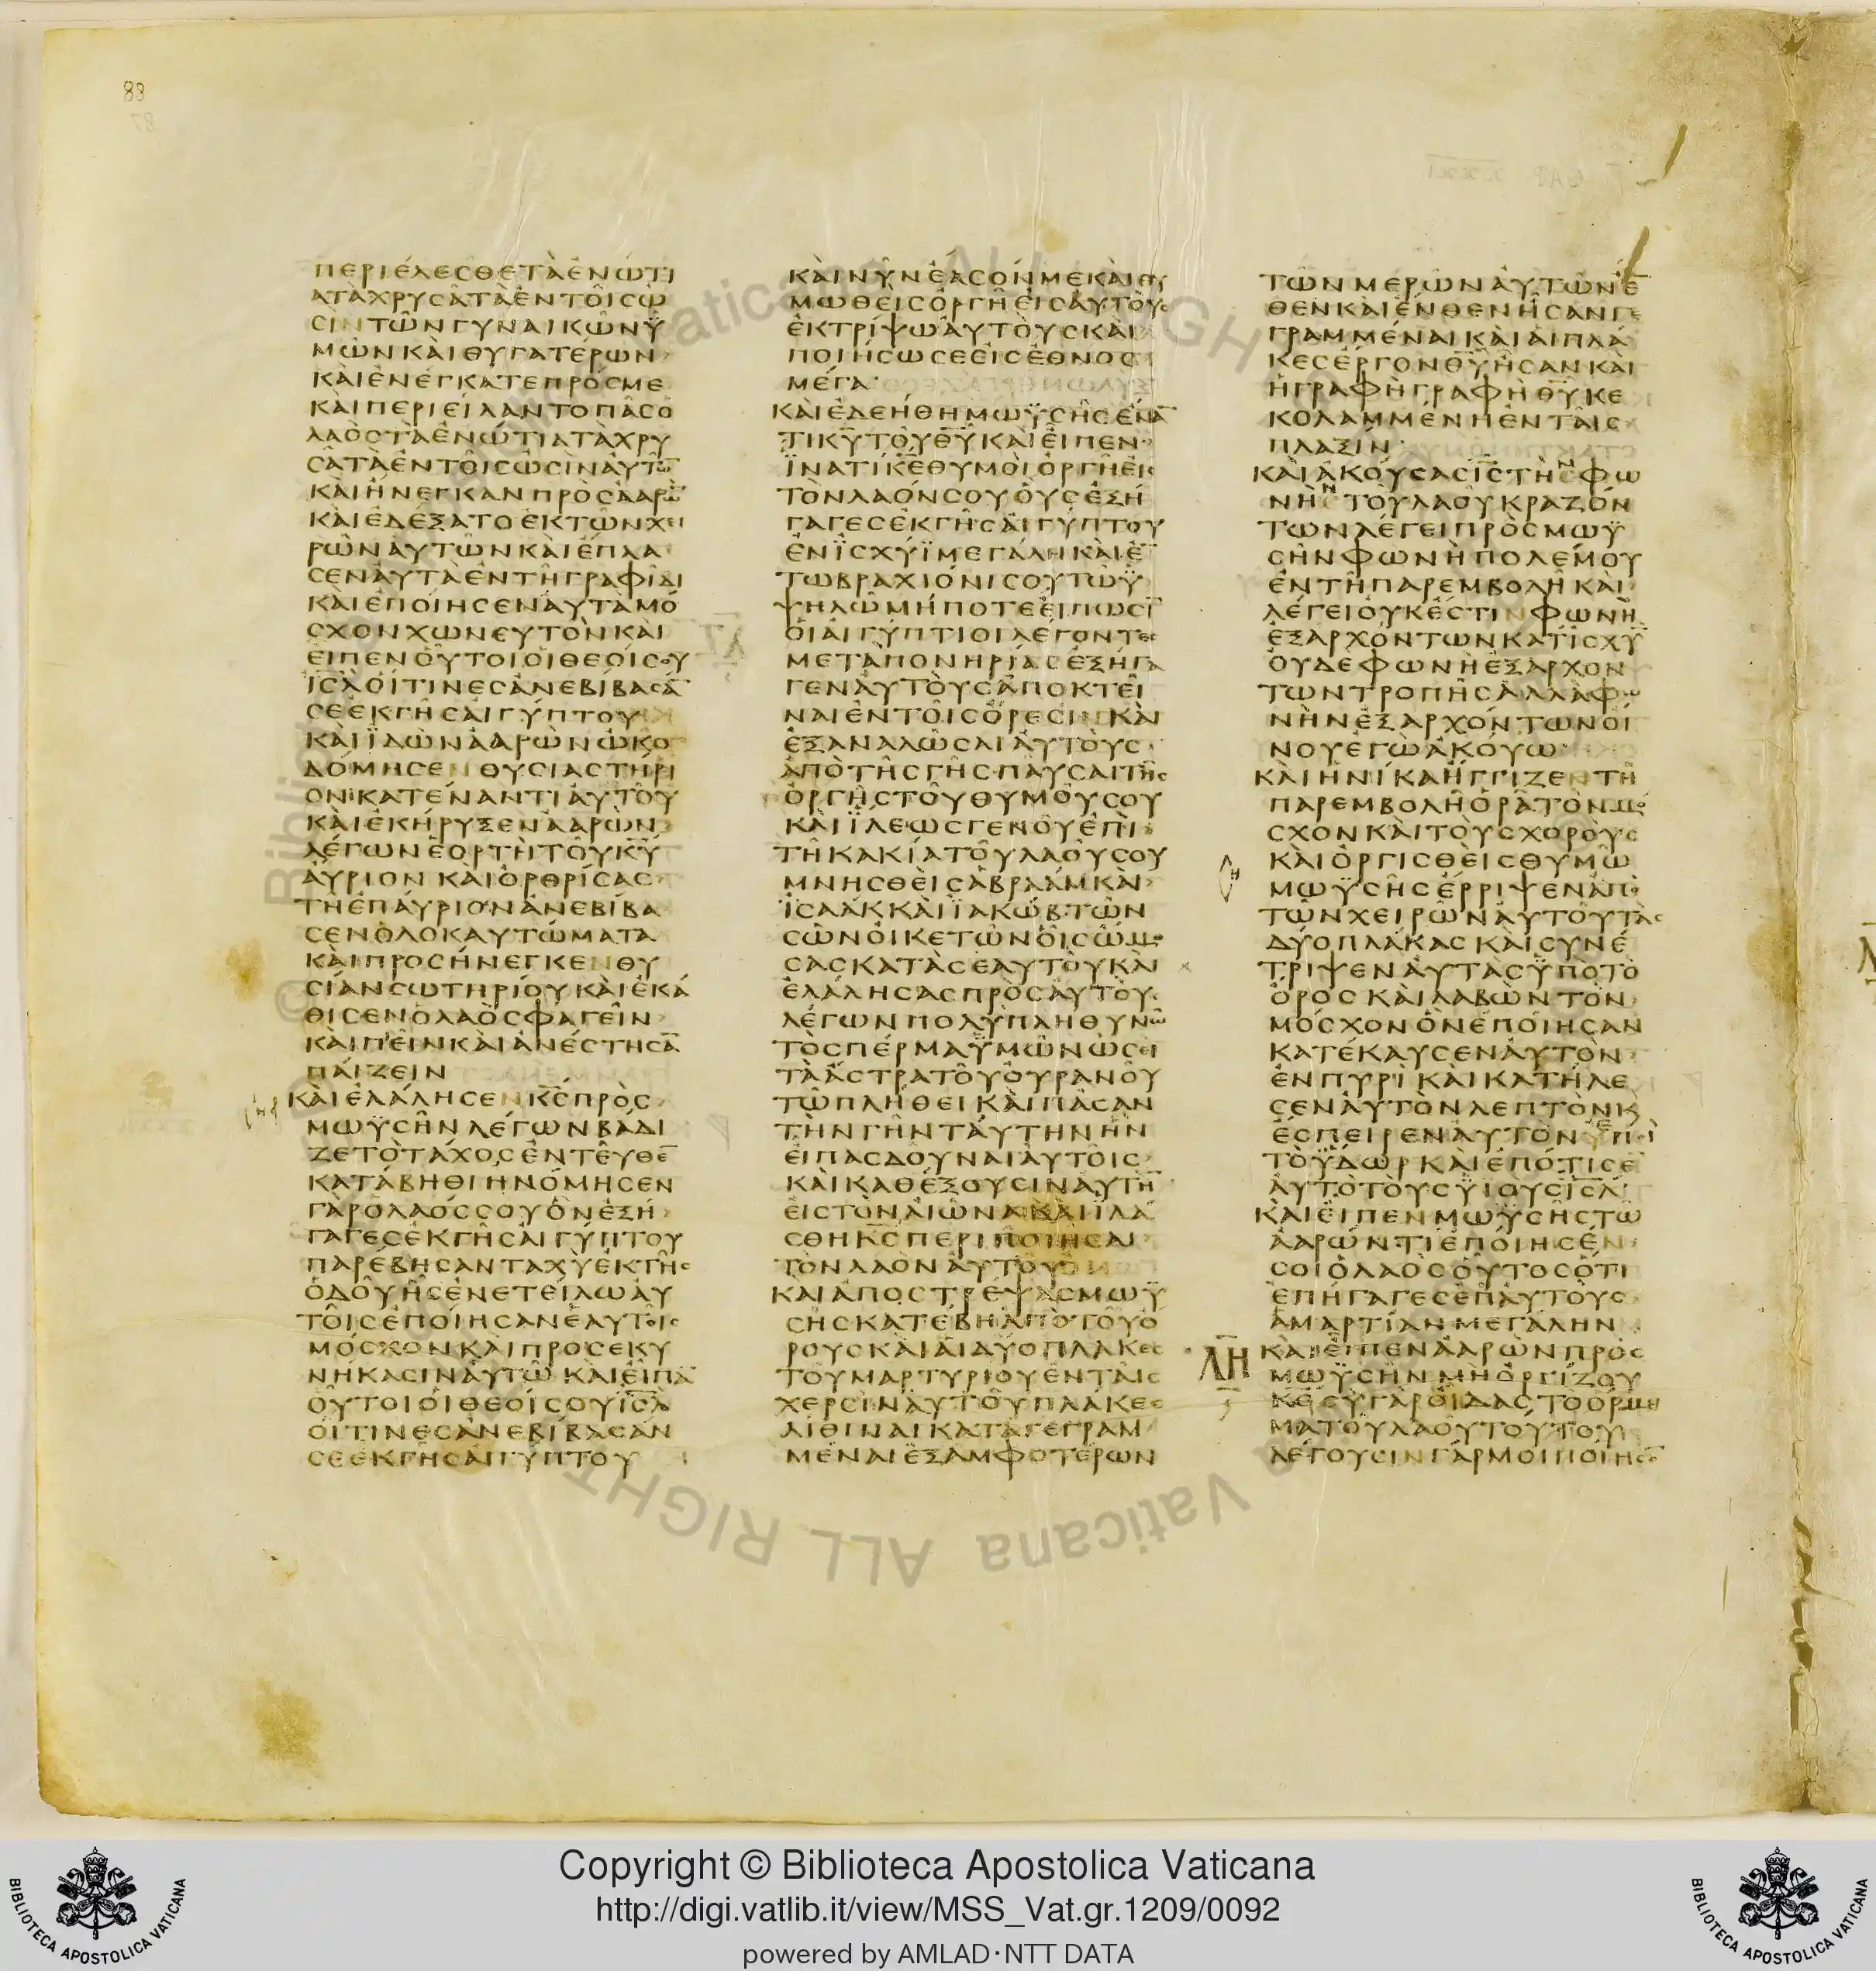 83
ΠΕΡΙΕΛΕΣΘΕΤΑΕΝΩΤΙ
ΑΤΑΧΡΥΣΑΤΑΕΝΤΟΙΣΩ
ΣΙΝΤΩΝΓΥΝΑΙΚΩΝΫ
ΜΩΝΚΑΙΘΥΓΑΤΕΡΩΝ
ΚΑΙΕΝΕΓΚΑΤΕΠΡΟΣΜΕ
ΚΑΙΠΕΡΙΕΙΛΑΝΤΟΠΑΣΟ
ΛΑΟΣΤΑΕΝΩΤΙΑΤΑΧΡΥ
ΣΑΤΑΕΝΤΟΙΣΩΣΙΝΑΥΤΩ̅
ΚΑΙΗΝΕΓΚΑΝΠΡΟΣΑΑΡΩ̅
ΚΑΙΕΔΕΞΑΤΟΕΚΤΩΝΧΕΙ
ΡΩΝΑΥΤΩΝΚΑΙΕΠΛΑ
ΣΕΝΑΥΤΑΕΝΤΗΓΡΑΦΙΔΙ
ΚΑΙΕΠΟΙΗΣΕΝΑΥΤΑΜΟ
ΣΧΟΝΧΩΝΕΥΤΟΝΚΑΙ
ΕΙΠΕΝΟΥΤΟΙΟΙΘΕΟΙΣΟΥ
Ι̅Σ̅Λ̅ΟΙΤΙΝΕΣΑΝΕΒΙΒΑΣΑ̅
ΣΕΕΚΓΗΣΑΙΓΥΠΤΟΥ
ΚΑΙΪΔΩΝΑΑΡΩΝΩΚΟ
ΔΟΜΗΣΕΝΘΥΣΙΑΣΤΗΡΙ
ΟΝΚΑΤΕΝΑΝΤΙΑΥΤΟΥ
ΚΑΙΕΚΗΡΥΞΕΝΑΑΡΩΝ
ΛΕΓΩΝΕΟΡΤΗΤΟΥΚ̅Υ̅
ΑΥΡΙΟΝΚΑΙΟΡΘΡΙΣΑΣ
ΤΗΕΠΑΥΡΙΟΝΑΝΕΒΙΒΑ
ΣΕΝΟΛΟΚΑΥΤΩΜΑΤΑ
ΚΑΙΠΡΟΣΗΝΕΓΚΕΝΘΥ
ΣΙΑΝΣΩΤΗΡΙΟΥΚΑΙΕΚΑ
ΘΙΣΕΝΟΛΑΟΣΦΑΓΕΙΝ
ΚΑΙΠΕΙΝΚΑΙΑΝΕΣΤΗΣΑ̅
ΠΑΙΖΕΙΝ
ΚΑΙΕΛΑΛΗΣΕΝΚ̅Σ̅ΠΡΟΣ
ΜΩΫΣΗΝΛΕΓΩΝΒΑΔΙ
ΖΕΤΟΤΑΧΟΣΕΝΤΕΥΘΕ̅
ΚΑΤΑΒΗΘΙΗΝΟΜΗΣΕΝ
ΓΑΡΟΛΑΟΣΣΟΥΟΝΕΞΗ
ΓΑΓΕΣΕΚΓΗΣΑΙΓΥΠΤΟΥ
ΠΑΡΕΒΗΣΑΝΤΑΧΥΕΚΤΗΣ
ΟΔΟΥΗΣΕΝΕΤΕΙΛΩΑΥ
ΤΟΙΣΕΠΟΙΗΣΑΝΕΑΥΤΟΙΣ
ΜΟΣΧΟΝΚΑΙΠΡΟΣΕΚΥ
ΝΗΚΑΣΙΝΑΥΤΩΚΑΙΕΙΠΑ̅
ΟΥΤΟΙΟΙΘΕΟΙΣΟΥΙ̅Σ̅Λ̅
ΟΙΤΙΝΕΣΑΝΕΒΙΒΑΣΑΝ
ΣΕΕΚΓΗΣΑΙΓΥΠΤΟΥ
ΚΑΙΝΥΝΕΑΣΟΝΜΕΚΑΙΘΥ
ΜΩΘΕΙΣΟΡΓΗΕΙΣΑΥΤΟΥΣ
ΕΚΤΡΙΨΩΑΥΤΟΥΣΚΑΙ
ΠΟΙΗΣΩΣΕΕΙΣΕΘΝΟΣ
ΜΕΓΑ
ΚΑΙΕΔΕΗΘΗΜΩΫΣΗΣΕΝΑ̅
ΤΙΚ̅Υ̅ΤΟΥΘ̅Υ̅ΚΑΙΕΙΠΕΝ
ΪΝΑΤΙΚ̅Ε̅ΘΥΜΟΙΟΡΓΗΕΙΣ
ΤΟΝΛΑΟΝΣΟΥΟΥΣΕΞΗ
ΓΑΓΕΣΕΚΓΗΣΑΙΓΥΠΤΟΥ
ΕΝΪΣΧΥΪΜΕΓΑΛΗΚΑΙΕ̅
ΤΩΒΡΑΧΙΟΝΙΣΟΥΤΩΫ
ΨΗΛΩΜΗΠΟΤΕΕΙΠΩΣΙ̅
ΟΙΑΙΓΥΠΤΙΟΙΛΕΓΟΝΤΕΣ
ΜΕΤΑΠΟΝΗΡΙΑΣΕΞΗΓΑ
ΓΕΝΑΥΤΟΥΣΑΠΟΚΤΕΙ
ΝΑΙΕΝΤΟΙΣΟΡΕΣΙΝΚΑΙ
ΕΞΑΝΑΛΩΣΑΙΑΥΤΟΥΣ
ΑΠΟΤΗΣΓΗΣΠΑΥΣΑΙΤΗΣ
ΟΡΓΗΣΤΟΥΘΥΜΟΥΣΟΥ
ΚΑΙΪΛΕΩΣΓΕΝΟΥΕΠΙ
ΤΗΚΑΚΙΑΤΟΥΛΑΟΥΣΟΥ
ΜΝΗΣΘΕΙΣΑΒΡΑΑΜΚΑΙ
ΪΣΑΑΚΚΑΙΪΑΚΩΒΤΩΝ
ΣΩΝΟΙΚΕΤΩΝΟΙΣΩΜΟ
ΣΑΣΚΑΤΑΣΕΑΥΤΟΥΚΑΙ
ΕΛΑΛΗΣΑΣΠΡΟΣΑΥΤΟΥΣ
ΛΕΓΩΝΠΟΛΥΠΛΗΘΥΝΩ
ΤΟΣΠΕΡΜΑΫΜΩΝΩΣΕΙ
ΤΑΑΣΤΡΑΤΟΥΟΥΡΑΝΟΥ
ΤΩΠΛΗΘΕΙΚΑΙΠΑΣΑΝ
ΤΗΝΓΗΝΤΑΥΤΗΝΗΝ
ΕΙΠΑΣΔΟΥΝΑΙΑΥΤΟΙΣ
ΚΑΙΚΑΘΕΞΟΥΣΙΝΑΥΤΗ̅
ΕΙΣΤΟΝΑΙΩΝΑΚΑΙΪΛΑ
ΣΘΗΚ̅Σ̅ΠΕΡΙΠΟΙΗΣΑΙ
ΤΟΝΛΑΟΝΑΥΤΟΥ
ΚΑΙΑΠΟΣΤΡΕΨΑΣΜΩΫ
ΣΗΣΚΑΤΕΒΗΑΠΟΤΟΥΟ
ΡΟΥΣΚΑΙΑΙΔΥΟΠΛΑΚΕΣ
ΤΟΥΜΑΡΤΥΡΙΟΥΕΝΤΑΙΣ
ΧΕΡΣΙΝΑΥΤΟΥΠΛΑΚΕΣ
ΛΙΘΙΝΑΙΚΑΤΑΓΕΓΡΑΜ
ΜΕΝΑΙΕΞΑΜΦΟΤΕΡΩΝ
ΤΩΝΜΕΡΩΝΑΥΤΩΝΕ̅
ΘΕΝΚΑΙΕΝΘΕΝΗΣΑΝΓΕ
ΓΡΑΜΜΕΝΑΙΚΑΙΑΙΠΛΑ
ΚΕΣΕΡΓΟΝΘ̅Υ̅ΗΣΑΝΚΑΙ
ΗΓΡΑΦΗΓΡΑΦΗΘ̅Υ̅ΚΕ
ΚΟΛΑΜΜΕΝΗΕΝΤΑΙΣ
ΠΛΑΞΙΝ
ΚΑΙΑΚΟΥΣΑΣΙ̅Σ̅ΤΗΝΦΩ
ΝΗΝΤΟΥΛΑΟΥΚΡΑΖΟΝ
ΤΩΝΛΕΓΕΙΠΡΟΣΜΩΫ
ΣΗΝΦΩΝΗΠΟΛΕΜΟΥ
ΕΝΤΗΠΑΡΕΜΒΟΛΗΚΑΙ
ΛΕΓΕΙΟΥΚΕΣΤΙΝΦΩΝΗ
ΕΞΑΡΧΟΝΤΩΝΚΑΤΙΣΧΥ̅
ΟΥΔΕΦΩΝΗΕΞΑΡΧΟΝ
ΤΩΝΤΡΟΠΗΣΑΛΛΑΦΩ
ΝΗΝΕΞΑΡΧΟΝΤΩΝΟΙ
ΝΟΥΕΓΩΑΚΟΥΩ
ΚΑΙΗΝΙΚΑΗΓΓΙΖΕΝΤΗ
ΠΑΡΕΜΒΟΛΗΟΡΑΤΟΝΜΟ
ΣΧΟΝΚΑΙΤΟΥΣΧΟΡΟΥΣ
ΚΑΙΟΡΓΙΣΘΕΙΣΘΥΜΩ
ΜΩΫΣΗΣΕΡΡΙΨΕΝΑΠΟ
ΤΩΝΧΕΙΡΩΝΑΥΤΟΥΤΑΣ
ΔΥΟΠΛΑΚΑΣΚΑΙΣΥΝΕ
ΤΡΙΨΕΝΑΥΤΑΣΫΠΟΤΟ
ΟΡΟΣΚΑΙΛΑΒΩΝΤΟΝ
ΜΟΣΧΟΝΟΝΕΠΟΙΗΣΑΝ
ΚΑΤΕΚΑΥΣΕΝΑΥΤΟΝ
ΕΝΠΥΡΙΚΑΙΚΑΤΗΛΕ
ΣΕΝΑΥΤΟΝΛΕΠΤΟΝΚ
ΕΣΠΕΙΡΕΝΑΥΤΟΝΕΠΙ
ΤΟΫΔΩΡΚΑΙΕΠΟΤΙΣΕ
ΑΥΤΟΤΟΥΣΫΙΟΥΣΙ̅Σ̅Λ̅
ΚΑΙΕΙΠΕΝΜΩΫΣΗΣΤΩ
ΑΑΡΩΝΤΙΕΠΟΙΗΣΕΝ
ΣΟΙΟΛΑΟΣΟΥΤΟΣΟΤΙ
ΕΠΗΓΑΓΕΣΕΠΑΥΤΟΥΣ
ΑΜΑΡΤΙΑΝΜΕΓΑΛΗΝ
ΛΗ
ΚΑΙΕΙΠΕΝΑΑΡΩΝΠΡΟΣ
ΜΩΫΣΗΝΜΗΟΡΓΙΖΟΥ
Κ̅Ε̅ΣΥΓΑΡΟΙΔΑΣΤΟΟΡΜΗ
ΜΑΤΟΥΛΑΟΥΤΟΥΤΟΥ
ΛΕΓΟΥΣΙΝΓΑΡΜΟΙΠΟΙΗΣΟ̅
Copyright © Biblioteca Apostolica Vaticana
http://digi.vatlib.it/view/MSS_Vat.gr.1209/0092
powered by AMLAD·NTT DATA
BIBLIOTECA APOSTOLICA VATICANA
BIBLIOTECA APOSTOLICA VATICANA